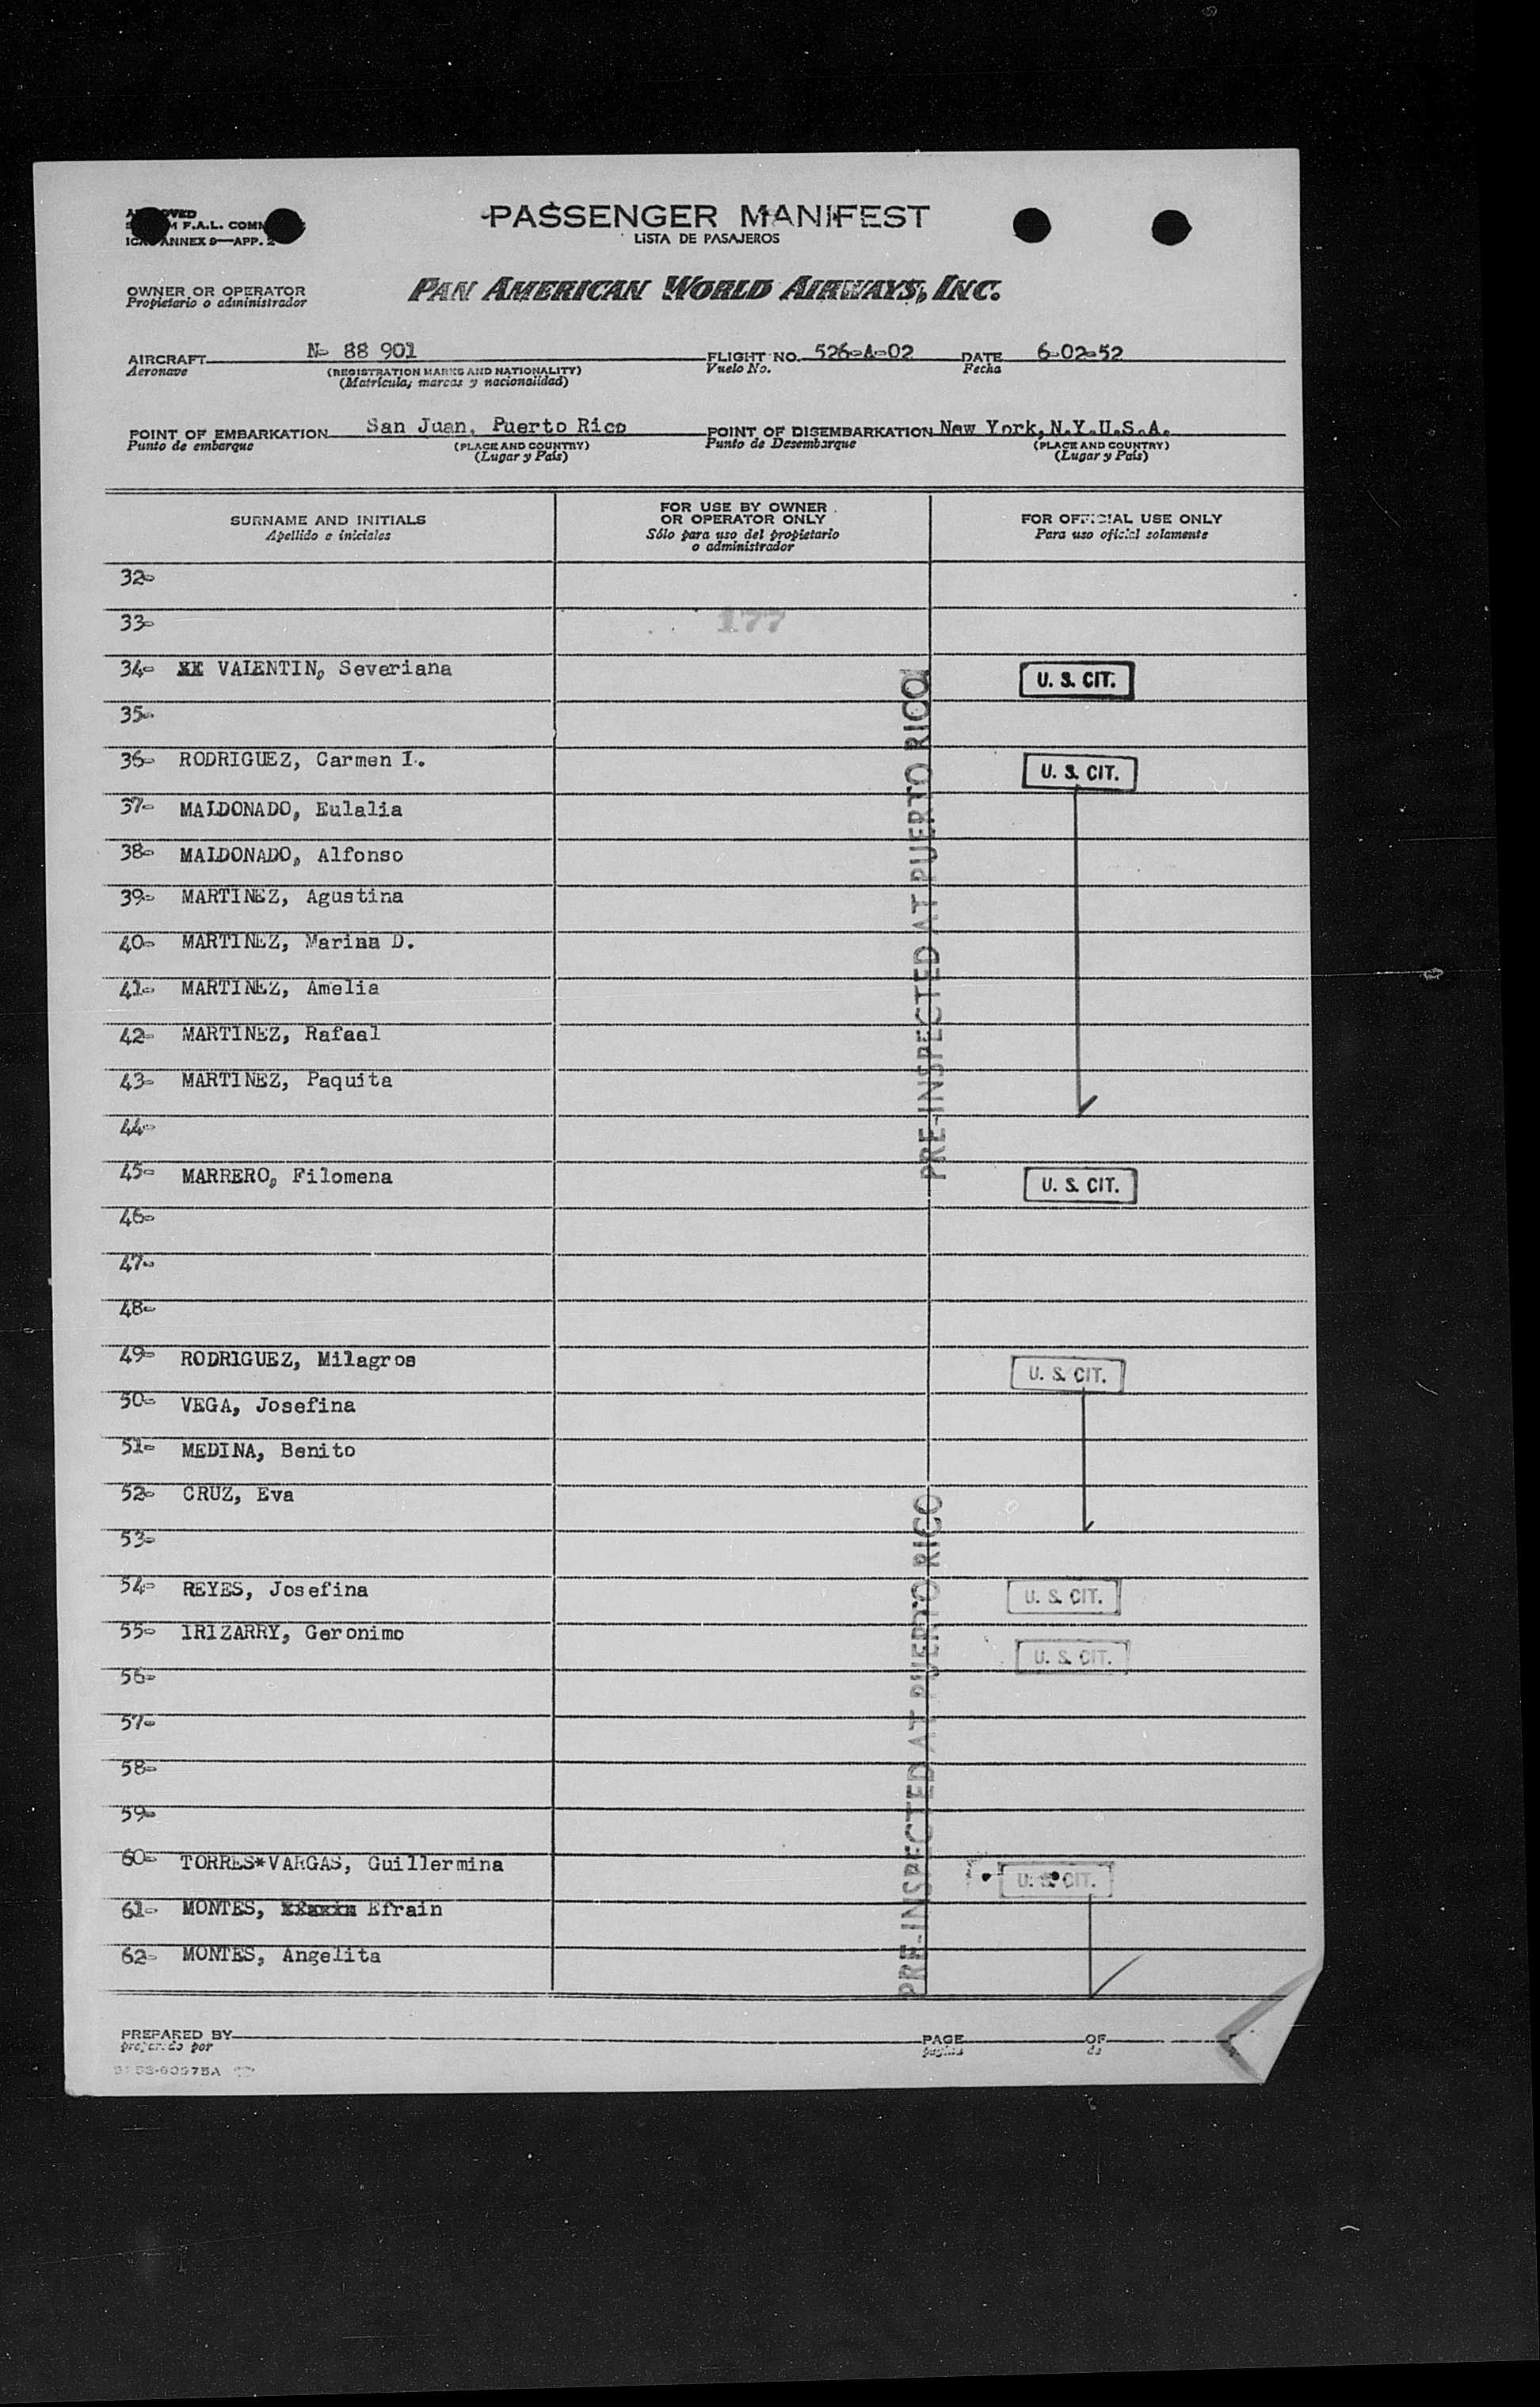 PASSENGER MANIFEST
LISTA DE PASAJEROS
F.A.L.
ANNEX 9—APP. 2
OWNER OR OPERATOR
Propietario o administrador
PAN AMERICAN WORLD AIRWAYS, INC.
AIRCRAFT N- 88 901 FLIGHT NO. 526-A-02 DATE 6-02-52
Aeronave (REGISTRATION MARKS AND NATIONALITY) Vuelo No. Fecha
(Matrícula, marcas y nacionalidad)
POINT OF EMBARKATION San Juan, Puerto Rico POINT OF DISEMBARKATION New York, N.Y.U.S.A.
Punto de embarque (PLACE AND COUNTRY) Punto de Desembarque (PLACE AND COUNTRY)
(Lugar y País) (Lugar y País)
SURNAME AND INITIALS
Apellido e iniciales
FOR USE BY OWNER
OR OPERATOR ONLY
Sólo para uso del propietario
o administrador
FOR OFFICIAL USE ONLY
Para uso oficial solamente
32-
33- 177
34- XX VALENTIN, Severiana U. S. CIT.
35-
36- RODRIGUEZ, Carmen I. U. S. CIT.
37- MALDONADO, Eulalia
38- MALDONADO, Alfonso
39- MARTINEZ, Agustina
40- MARTINEZ, Marina D.
41- MARTINEZ, Amelia
42- MARTINEZ, Rafael
43- MARTINEZ, Paquita
44-
PRE-INSPECTED AT PUERTO RICO
45- MARRERO, Filomena U. S. CIT.
46-
47-
48-
49- RODRIGUEZ, Milagros U. S. CIT.
50- VEGA, Josefina
51- MEDINA, Benito
52- CRUZ, Eva
53-
54- REYES, Josefina U. S. CIT.
55- IRIZARRY, Geronimo U. S. CIT.
56-
57-
58-
59-
60- TORRES*VARGAS, Guillermina U. S. CIT.
61- MONTES, Efrain
62- MONTES, Angelita
PRE-INSPECTED AT PUERTO RICO
PREPARED BY PAGE OF
preparado por pagina de